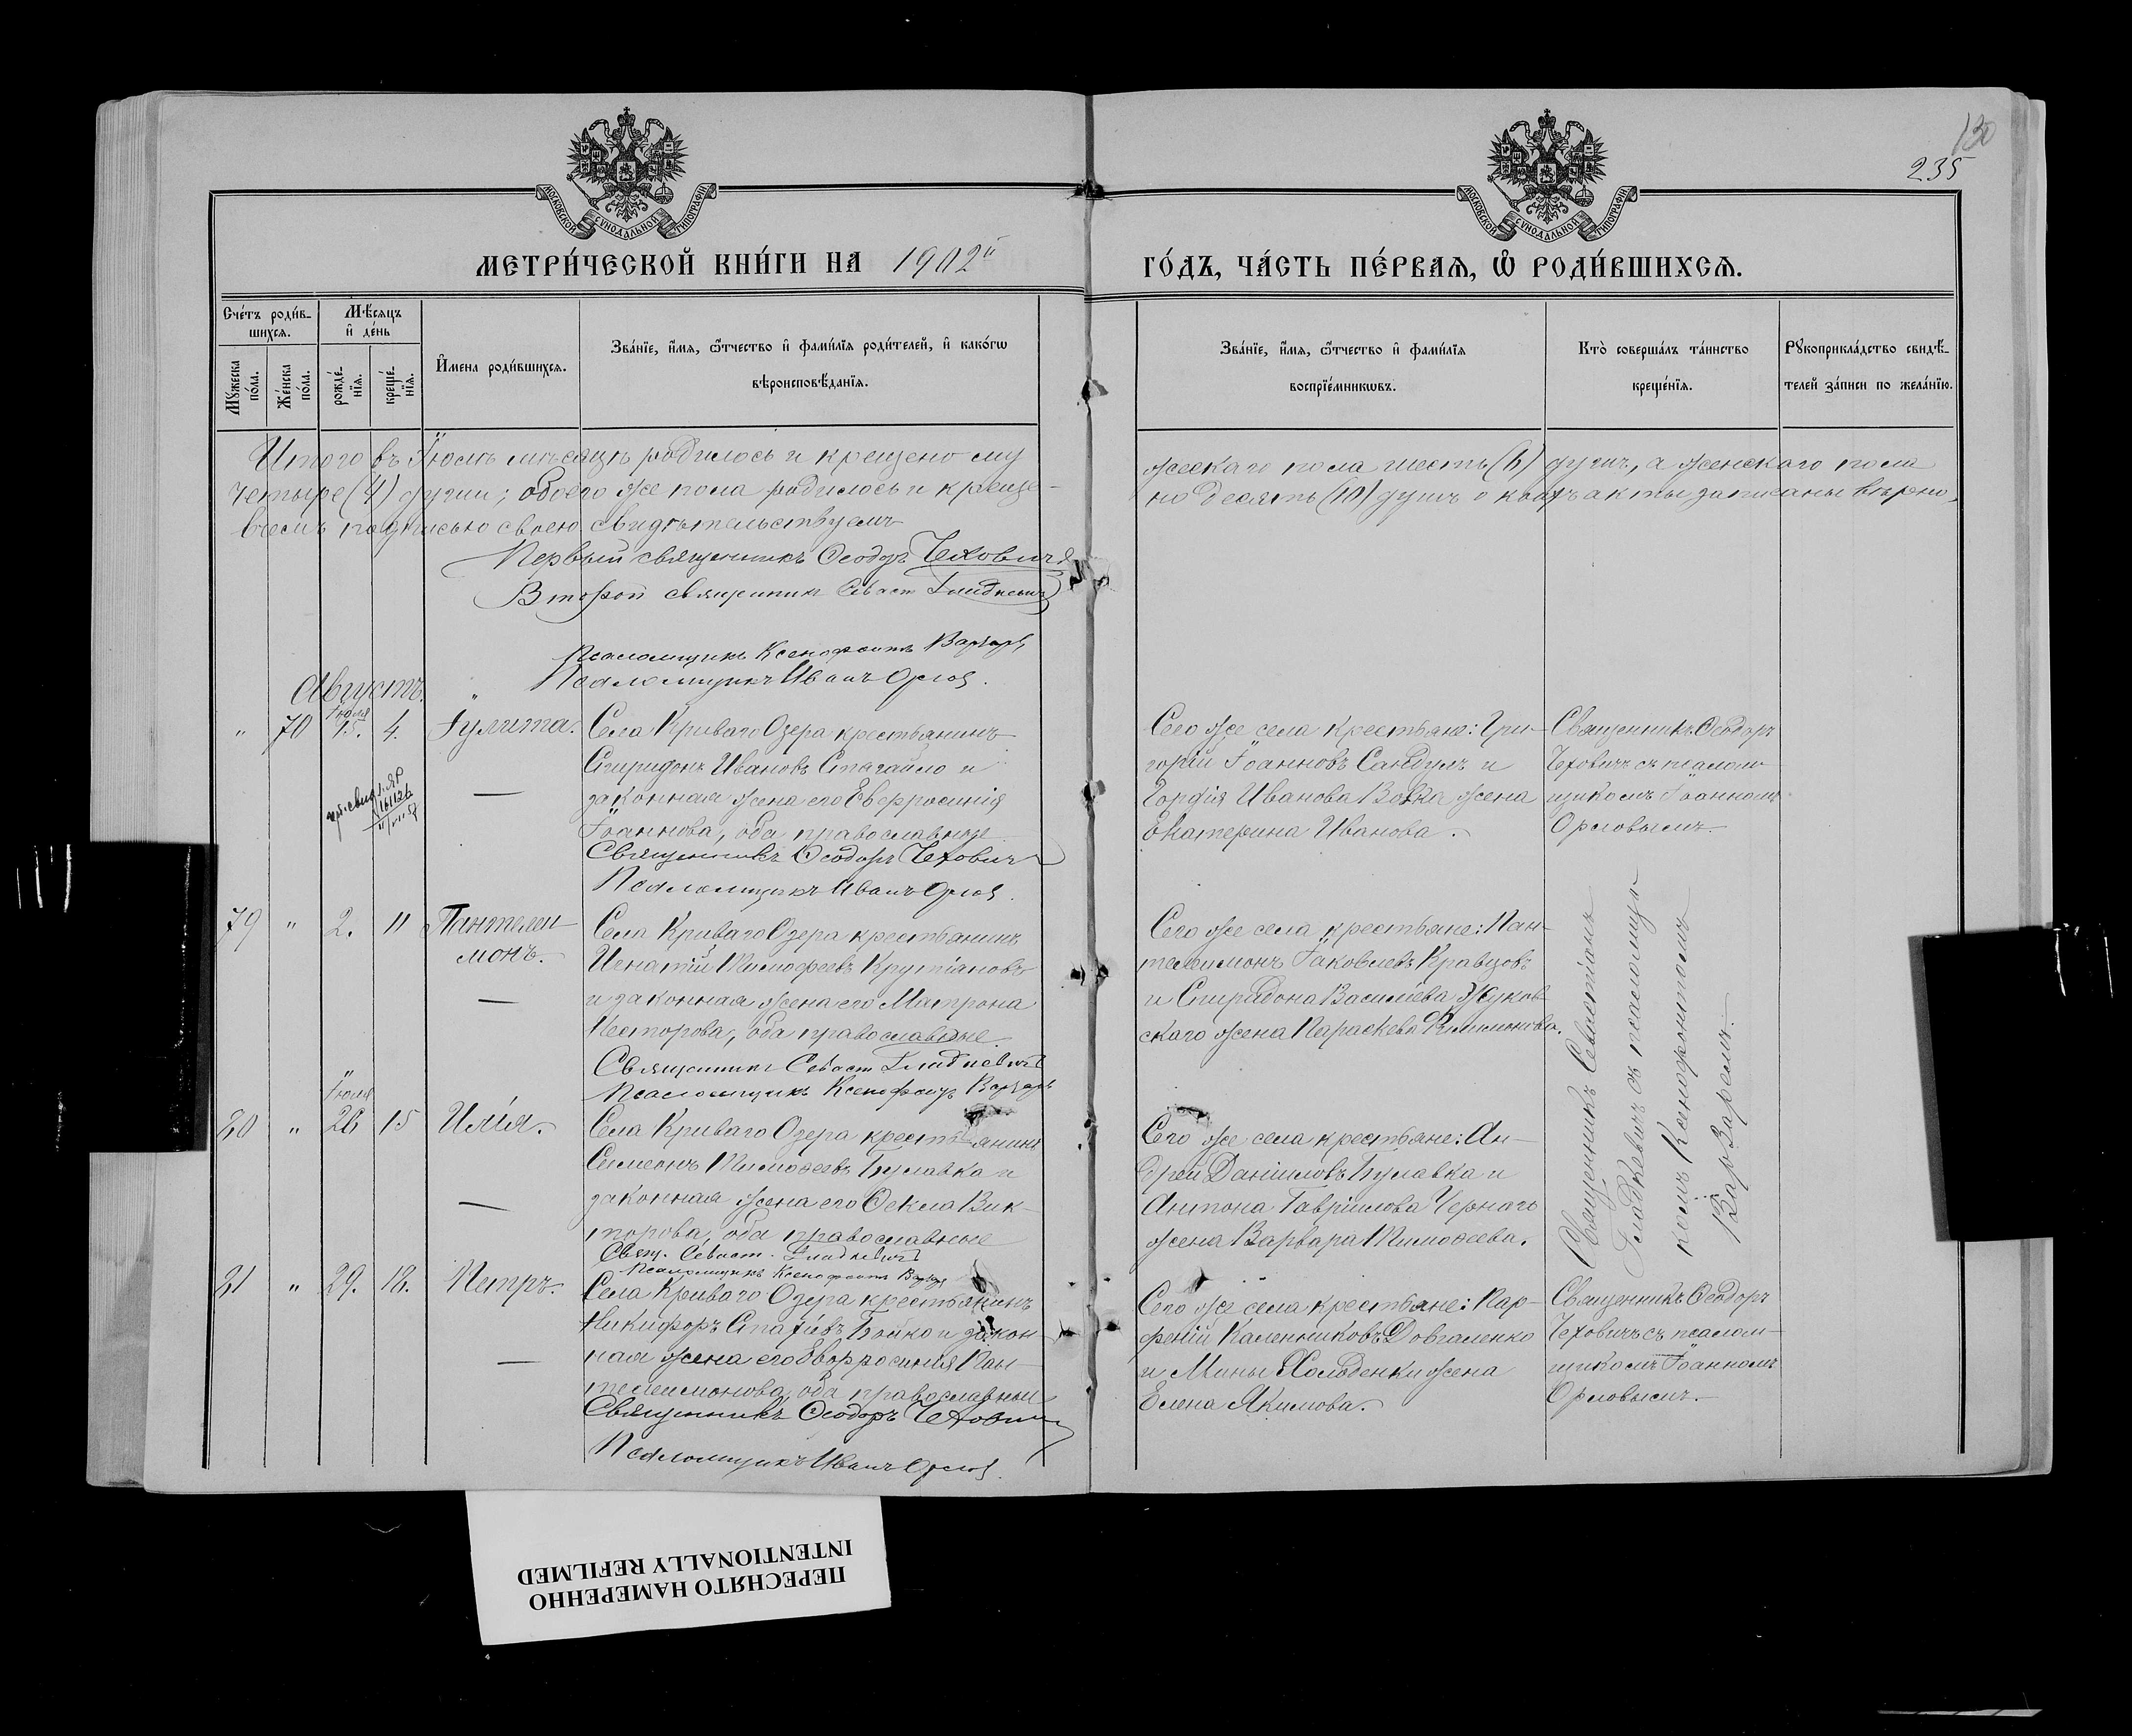 130
235
МОСКОВСКОЙ СѴНОДАЛЬНОЙ ТИПОГРАФІИ
МОСКОВСКОЙ СѴНОДАЛЬНОЙ ТИПОГРАФІИ
МЕТРИ́ЧЕСКОЙ КНИ́ГИ НА 1902й
ГО́ДЪ, ЧА́СТЬ ПЕ́РВАѦ, Ѡ҆ РОДИ́ВШИХСѦ.
Сче́тъ роди́в-
шихсѧ.
Мѣ́сяцъ
и҆ де́нь
Мꙋ́жеска по́ла.
Же́нска по́ла.
рожде́-
нїѧ.
креще́-
нїѧ.
И҆мена роди́вшихсѧ.
Зва́нїе, и҆́мѧ, ѻ҆́тчество и҆ фами́лїѧ роди́телей, и҆ како́гѡ
вѣроисповѣ́данїѧ.
Зва́нїе, и҆́мѧ, ѻ҆́тчество и҆ фами́лїѧ
воспрїе́мникѡвъ.
Кто̀ соверша́лъ та́инство
креще́нїѧ.
Рꙋкоприкла́дство свидѣ́-
телей за́писи по жела́нїю.
Итого въ Іюлѣ мѣсяцѣ родилось и крещено му
жескаго пола шесть (6) душъ, а женскаго пола
четыре (4) души; обоего же пола родилось и креще-
но десять (10) душъ о коихъ акты записаны вѣрно,
въ чемъ подписью своею свидѣтельствуемъ
Первый священникъ Ѳеодоръ Чеховичъ
Второй священникъ Севаст Гладкевичъ
Псаломщикъ Ксенофонтъ Варзарь
Псаломщикъ Иванъ Орловъ.
Августъ. "
" 70 Іюля 15. 4. Іулита.
Села Криваго Озера крестьянинъ
Спиридонъ Ивановъ Стагайло и
законная жена его Евфросинія
Іоаннова, оба православные
Священникъ Ѳеодоръ Чеховичъ
Псаломщикъ Иванъ Орловъ.
Сего же села крестьяне: Гри-
горій Іоанновъ Сандулъ и
Гордія Иванова Вовка жена
Екатерина Иванова.
Священникъ Ѳеодоръ
Чеховичъ съ псалом-
щикомъ Іоанномъ
Орловымъ.
79 " 2. 11 Пантелеи-
монъ.
Села Криваго Озера крестьянинъ
Игнатій Тимофеевъ Крутіановъ
и законная жена его Матрона
Несторова, оба православные.
Священникъ Севаст Гладкевичъ
Псаломщикъ Ксенофонтъ Варзарь
Сего же села крестьяне: Пан-
телеимонъ Іаковлевъ Кравцовъ
и Спиридона Василіева Жуков-
скаго жена Параскева
Священникъ Севастіанъ
Гладкевичъ съ псаломщи-
комъ Ксенофонтомъ
Варзаремъ.
80 " Іюля 26 15 Илія.
Села Криваго Озера крестьянинъ
Симеонъ Тимоѳеевъ Булавка и
законная жена его Ѳекла Вик-
торова, оба православные
Свящ. Севаст. Гладкевичъ
Псаломщикъ Ксенофонтъ Варзарь
Сего же села крестьяне: Ан-
дрей Даніиловъ Булавка и
Антона Гавріилова Чернаго
жена Варвара Тимоѳеева.
81 " 29. 18. Петръ.
Села Криваго Озера крестьянинъ
Никифоръ Бойко и закон-
ная жена его Евфросинія Пан-
телеимонова, оба православные
Священникъ Ѳеодоръ Чеховичъ
Псаломщикъ Иванъ Орловъ.
Сего же села крестьяне: Пар-
феній Каленниковъ Довгаленко
и Мины жена
Елена Якимова.
Священникъ Ѳеодоръ
Чеховичъ съ псалом-
щикомъ Іоанномъ
Орловымъ.
ПЕРЕСНЯТО НАМЕРЕННО
INTENTIONALLY REFILMED